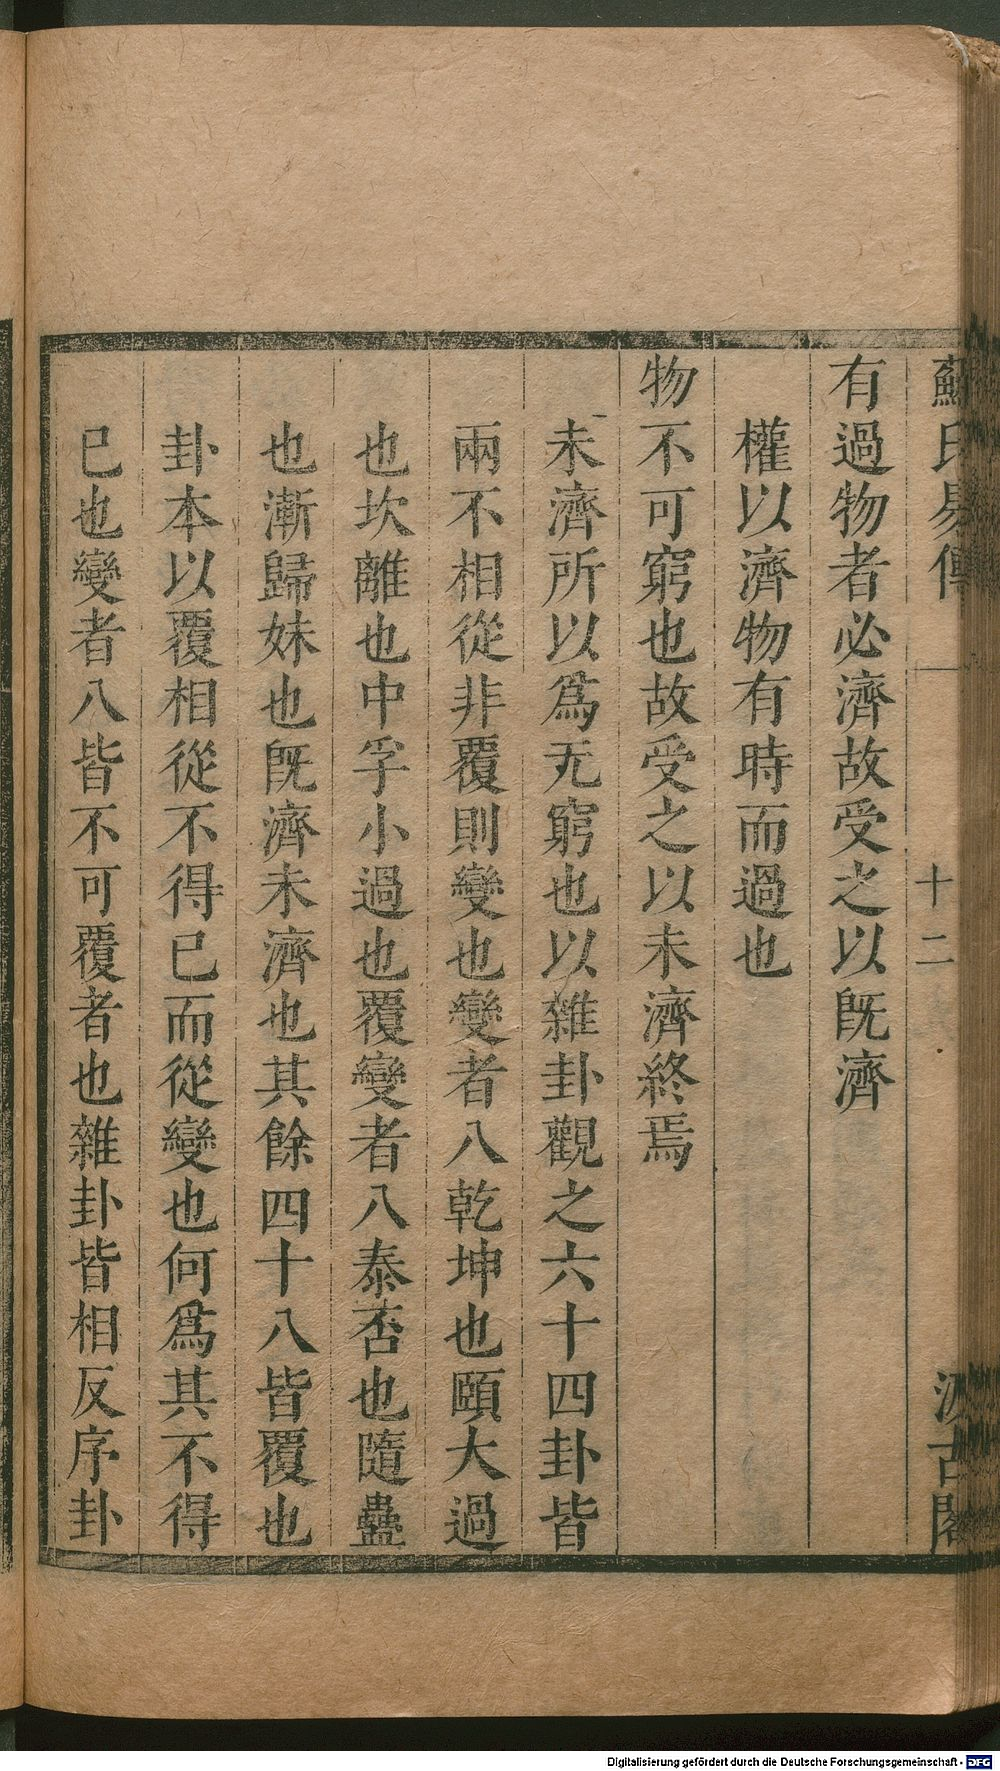 蘇氏易傳
十二
汲古閣
有過物者必濟故受之以旣濟
權以濟物有時而過也
物不可窮也故受之以未濟終焉
未濟所以爲无窮也以雜卦觀之六十四卦皆
兩不相從非覆則變也變者八乾坤也頤大過
也坎離也中孚小過也覆變者八泰否也隨蠱
也漸歸妹也旣濟未濟也其餘四十八皆覆也
卦本以覆相從不得已而從變也何爲其不得
已也變者八皆不可覆者也雜卦皆相反序卦
Digitalisierung gefördert durch die Deutsche Forschungsgemeinschaft - DFG